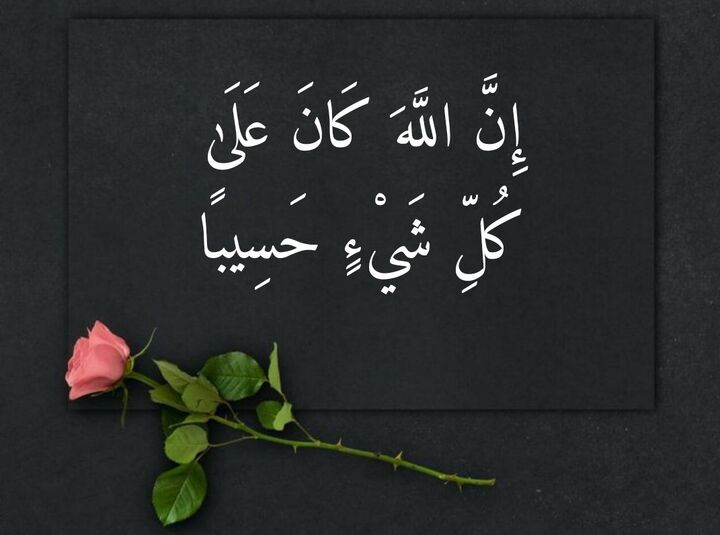 إِنَّ اللَّهَ كَانَ عَلَىٰ
كُلِّ شَيْءٍ حَسِيبًا